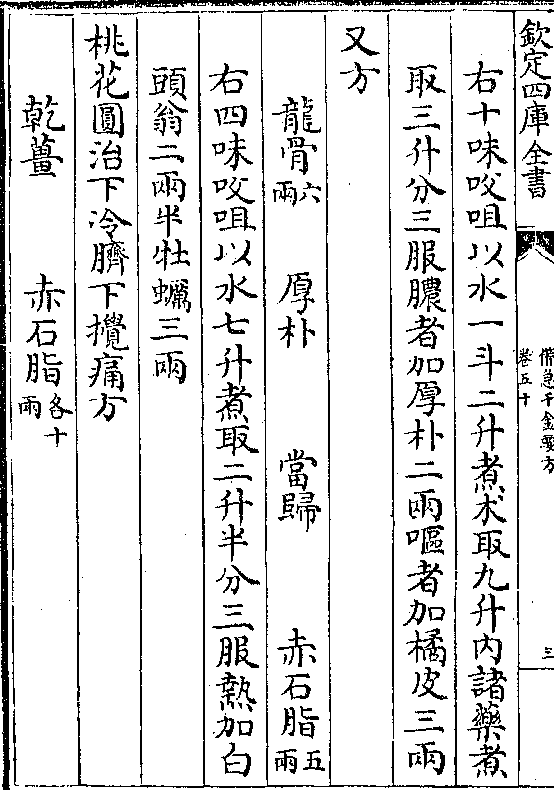 欽定四庫全書
備急千金要方
卷五十
三
右十味㕮咀以水一斗二升煮朮取九升内諸藥煮
取三升分三服膿者加厚朴二兩嘔者加橘皮三兩
又方
龍骨六兩 厚朴 當歸 赤石脂五兩
右四味㕮咀以水七升煮取二升半分三服熱加白
頭翁二兩半牡蠣三兩
桃花圓治下冷臍下攪痛方
乾薑 赤石脂各十兩